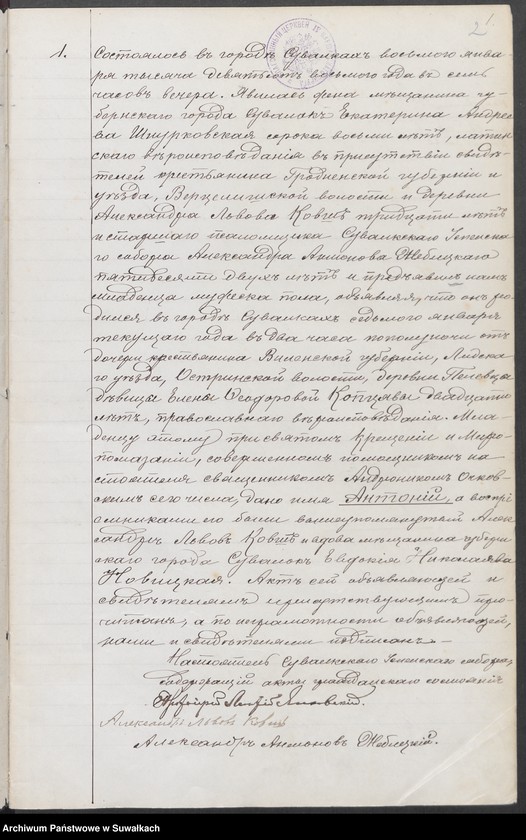 2
1.
Состоялось въ городѣ Сувалкахъ восьмого янва-
ря тысяча девятьсотъ восьмого года въ семь
часовъ вечера. Явилась жена мѣщанина гу-
бернскаго города Сувалокъ Екатерина Андрее-
ва Шнурковская сорока восьми лѣтъ, латин-
скаго вѣроисповѣданія въ присутствіи свидѣ-
телей крестьянина Гродненской губерніи и
уѣзда, Верцелишской волости и деревни
Александра Львова Ковшъ тридцати лѣтъ
и старшаго псаломщика Сувалкскаго Успенска-
го собора Александра Антонова Жебицкаго
пятидесяти двухъ лѣтъ и предъявила намъ
младенца мужеска пола, объявляя, что онъ ро-
дился въ городѣ Сувалкахъ седьмого января
текущаго года въ два часа пополуночи отъ
дочери крестьянина Виленской губерніи, Лидска-
го уѣзда, Остринской волости, деревни
дѣвицы Елены Ѳеодоровой двадцати
лѣтъ, православнаго вѣроисповѣданія. Мла-
денцу этому при святомъ Крещеніи и Миро-
помазаніи, совершенномъ помощникомъ на-
стоятеля священникомъ Андроникомъ
сего числа, дано имя Антоній, а воспрі-
емниками его были вышеупомянутый Алек-
сандръ Львовъ Ковшъ и вдова мѣщанина губерн-
скаго города Сувалокъ Евдокія Николаева
Новицкая. Актъ сей объявляющей и
свидѣтелямъ присутствующимъ про-
читанъ, а по неграмотности объявляющей,
нами и свидѣтелями подписанъ.
Настоятель Сувалкскаго Успенскаго собора,
содержащій акты гражданскаго состоянія
Протоіерей
Александръ Львовъ Ковшъ
Александръ Антоновъ Жебицкій.
Archiwum Państwowe w Suwałkach